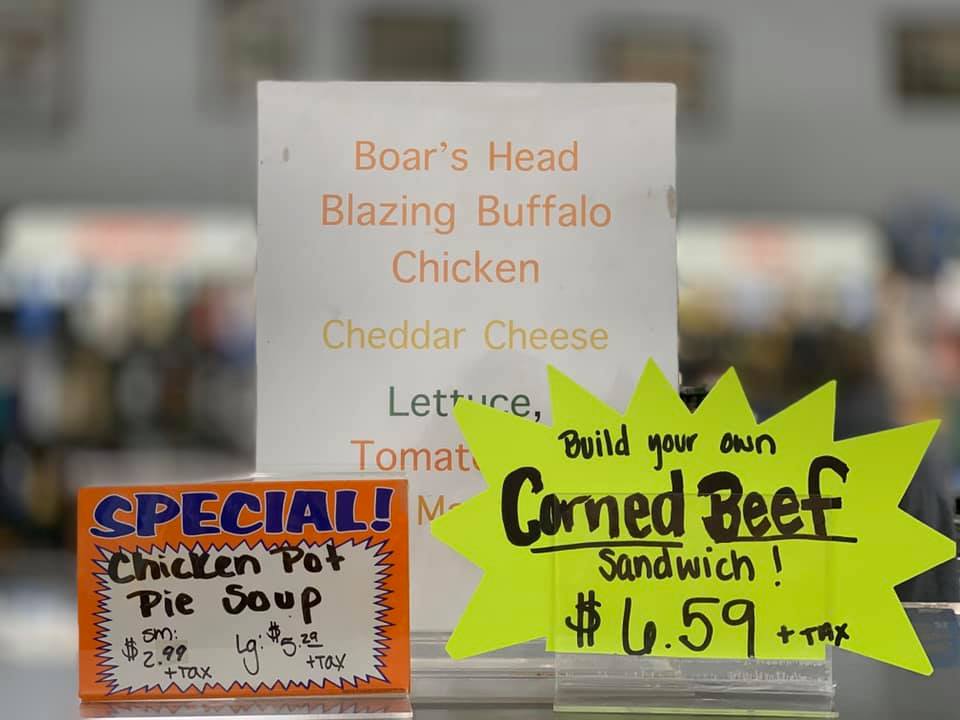 Boar's Head
Blazing Buffalo
Chicken
Cheddar Cheese
Lettuce,
SPECIAL!
Chicken Pot
Pie Soup
sm: $2.99 +TAX
lg: $5.29 +TAX
Build your own
Corned Beef
Sandwich!
$6.59 + TAX